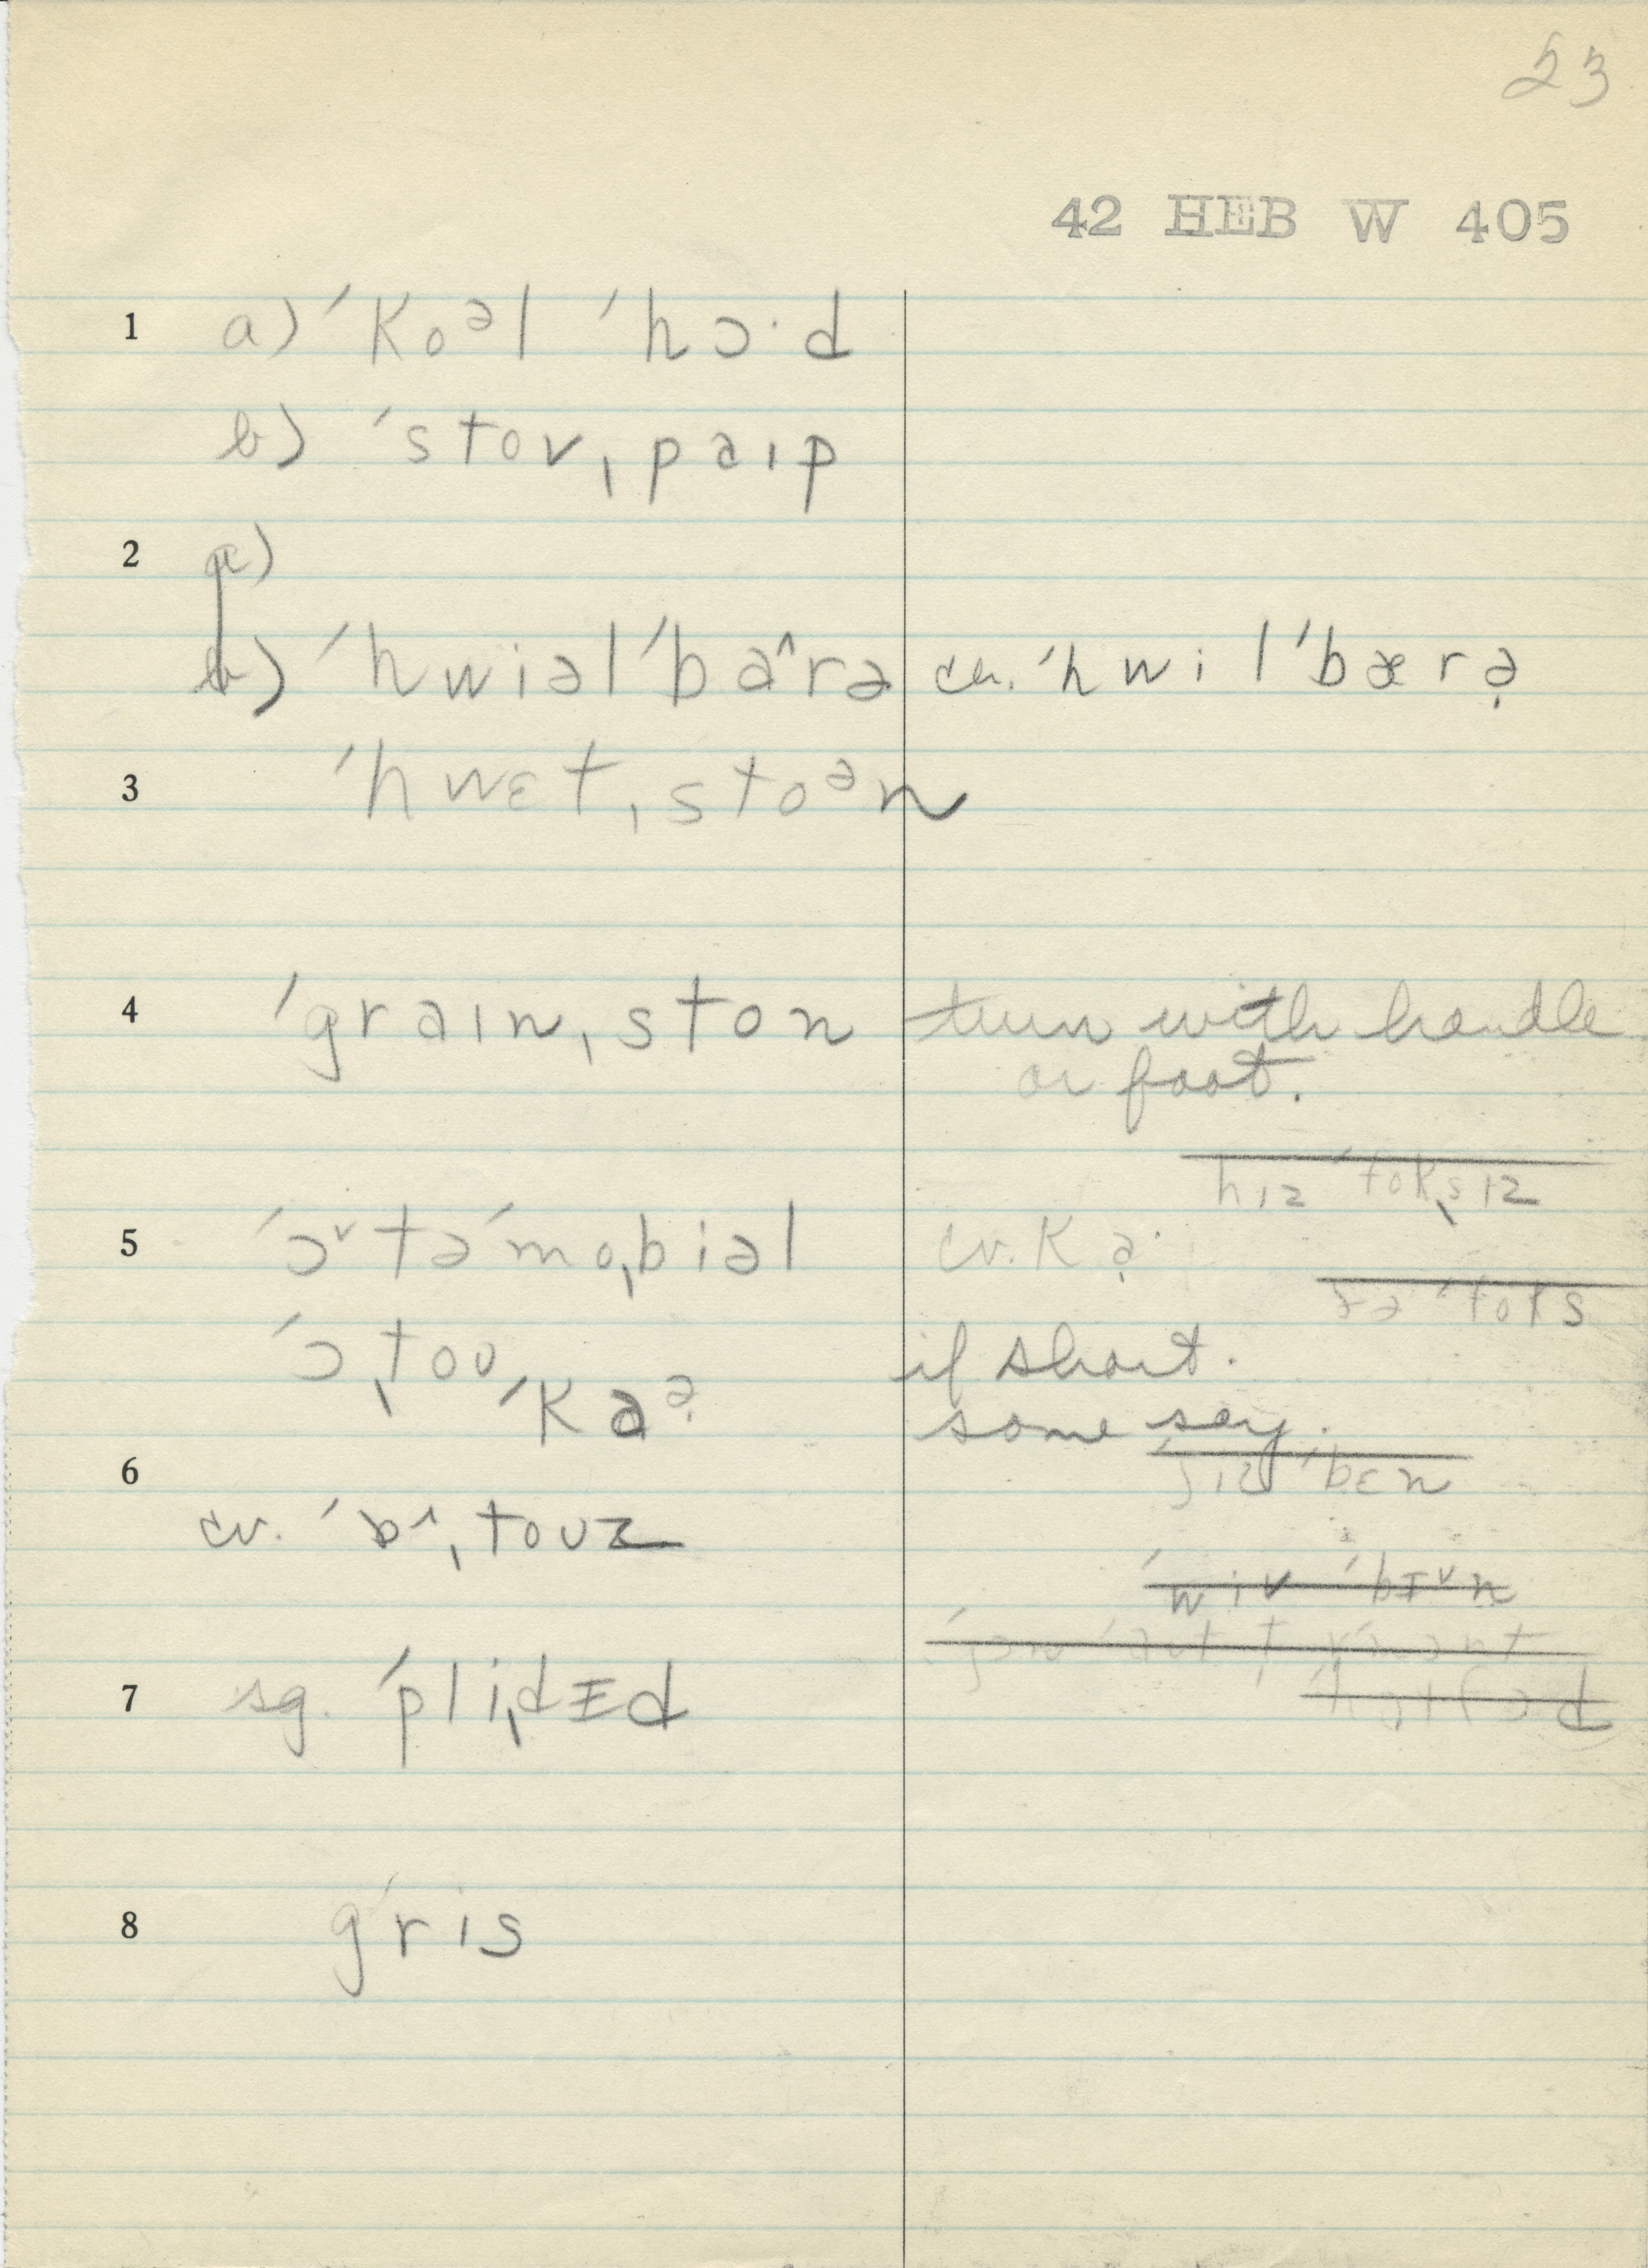 23
42 HEB W 405
1 a) ˈkoᵊl ˈhɔ·d
b) ˈstov ˌpaɪp
2 a)
b) ˈhwiəlˈba^rə cv. ˈhwilˈbærə̣
3 ˈhwɛtˌstoᵊn
4 ˈgraɪnˌston turn with handle
or foot.
hɪz ˈtokˌsɪz
5 ˈɔ˅təˈmoˌbiəl cv. kạ·
ðə ˈtoks
ˈɔˌtoʊ ˈkaᵊ̣ if short.
some say.
6 ʃɪz ˈbɛn
cv. ˈɒ^ˌtoʊz
ˈwiv ˈbɪ˅n
7 sg. ˈpliˌdɪd
8 gris